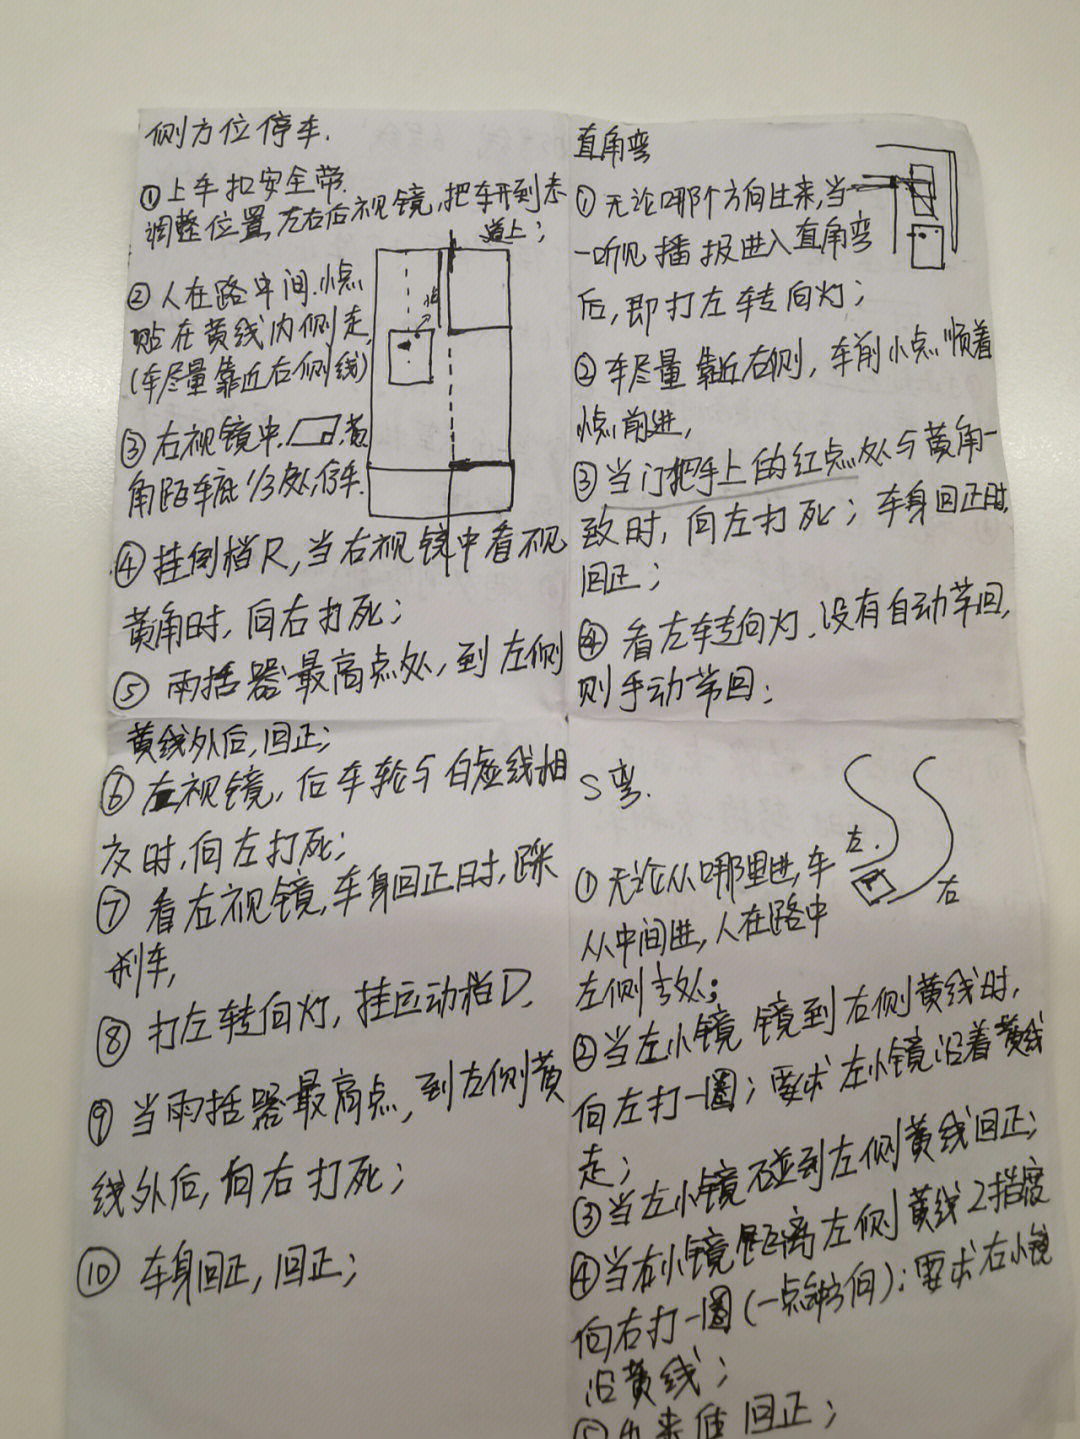 侧方位停车.
①上车扣安全带.
调整位置,左右后视镜,把车开到
道上;
②人在路中间.小点
贴在黄线内侧走,
(车尽量靠近右侧线)
③右视镜中,黄
角距车底1/3处,停车.
④挂倒档R,当右视镜中看不见
黄角时,向右打死;
⑤雨括器最高点处,到左侧
黄线外后,回正;
⑥左视镜,后车轮与白虚线相
交时,向左打死;
⑦看左视镜,车身回正时,踩
刹车,
⑧打左转向灯,挂运动档D.
⑨当雨括器最高点,到左侧黄
线外后,向右打死;
⑩车身回正,回正;
直角弯
①无论哪个方向进来,当
一听见播报进入直角弯
后,即打左转向灯;
②车尽量靠近右侧,车前小点顺着
小点前进,
③当门把手上的红点处与黄角一
致时,向左打死;车身回正时,
回正;
④看左转向灯,没有自动关回,
则手动关回;
S弯.
左.
右
①无论从哪里进,车
从中间进,人在路中
左侧处;
②当左小镜镜到右侧黄线时,
向左打一圈;要求左小镜沿着黄线
走;
③当左小镜碰到左侧黄线回正;
④当右小镜距离左侧黄线2指宽
向右打一圈(一点方向);要求右小镜
沿黄线;
⑤出来后回正;